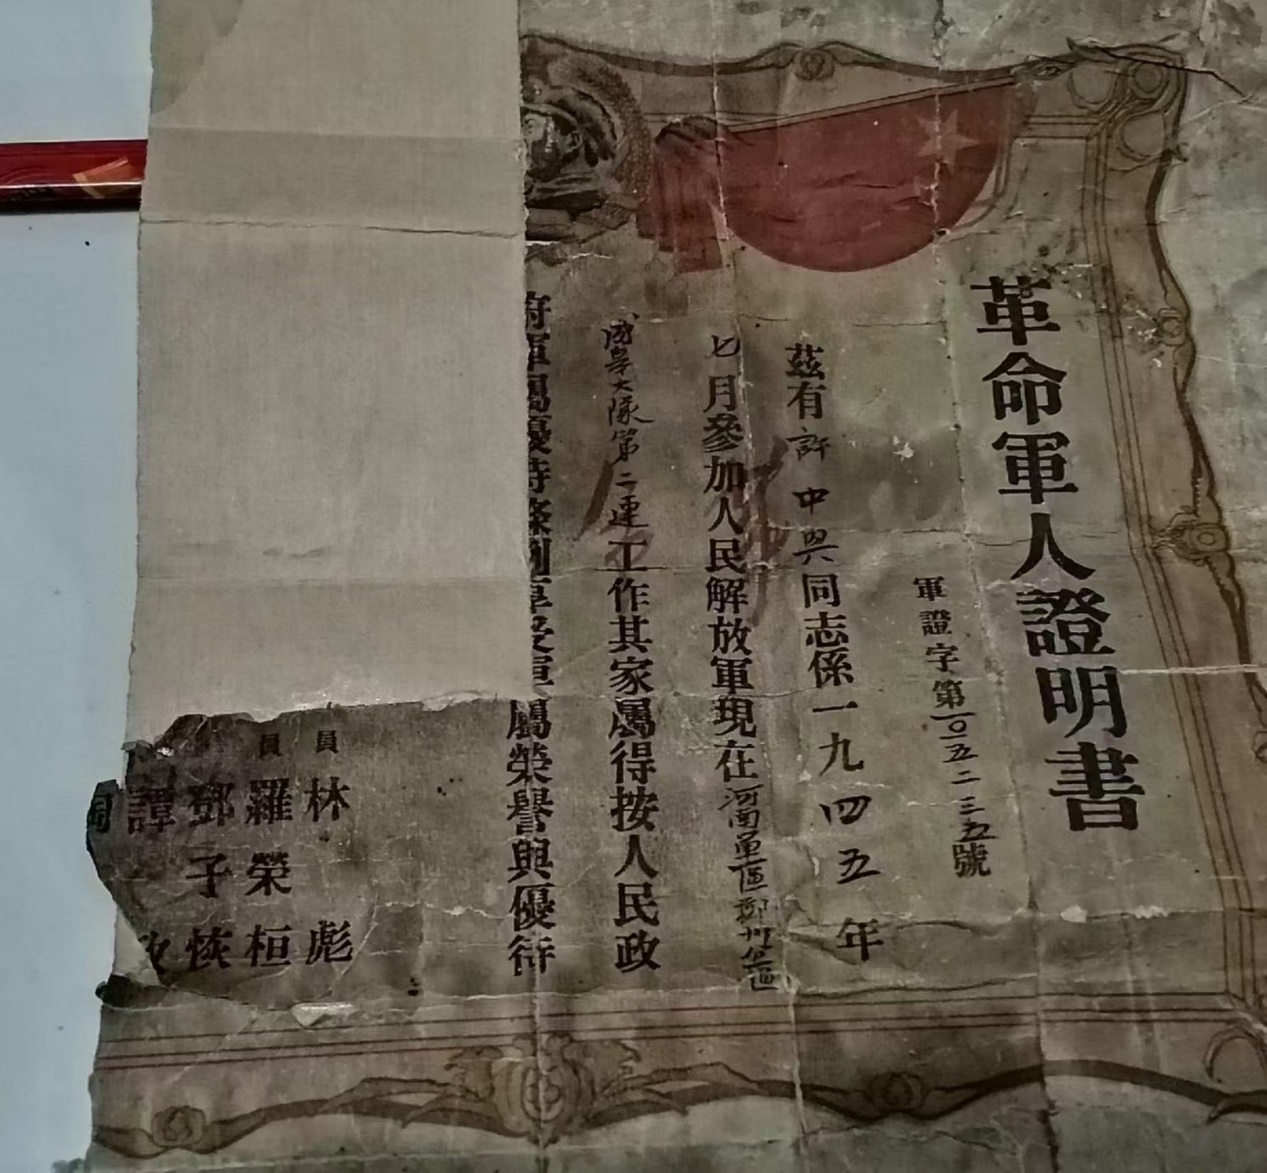 革命軍人證明書
軍證字第一〇五二三五號
茲有許中興同志係一九四五年
七月參加人民解放軍現在河南軍區鄭州分區
成皋大隊第二連工作其家屬得按人民政
府軍屬優待條例享受軍屬榮譽與優待
員 林彪
員 羅榮桓
鄧子恢
譚政